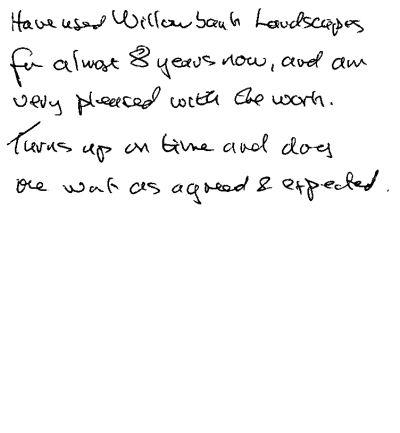 Have used Willowbank Landscapes
for almost 8 years now, and am
very pleased with the work.
Turns up on time and does
the work as agreed & expected.